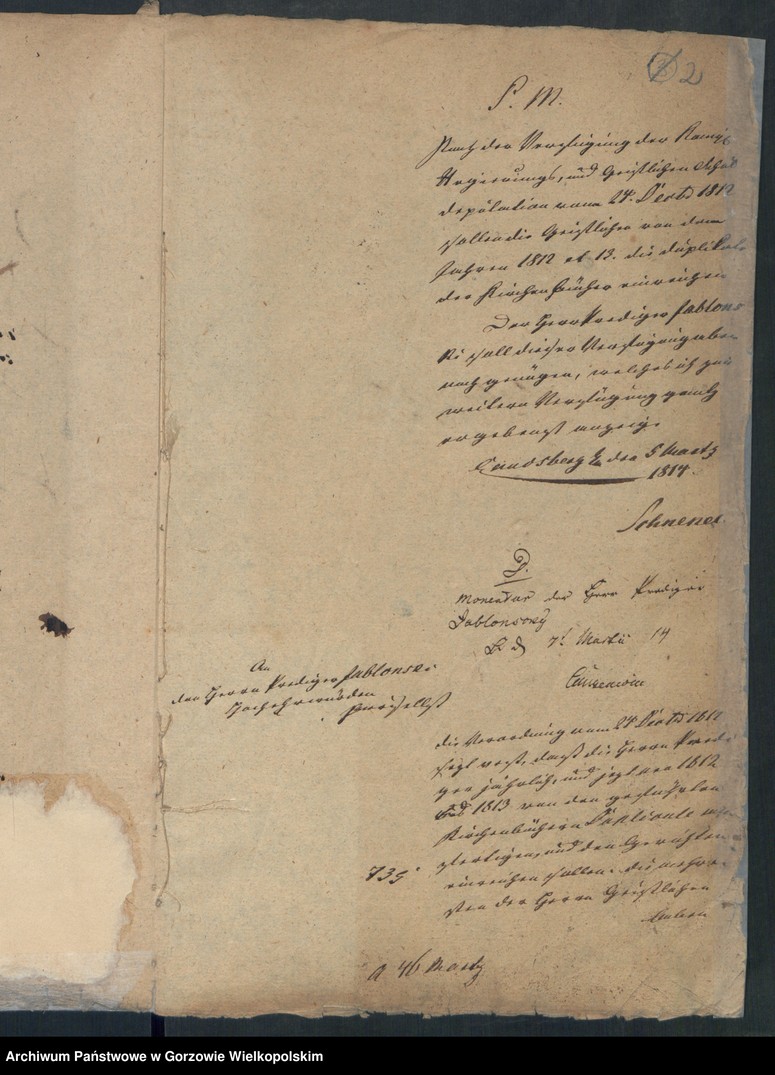 2
P. M.
Nach der Verfügung der Königl
Regierungs, und Geistlichen Schul
deputation vom 24. Decbr 1812
sollen die Geistlichen von den
Jahren 1812 et 13. die Duplikate
der Kirchenbücher einreichen
Der Herr Prediger Jablons
ki soll dieser Verfügung
noch genügen, welches ich zur
weitern Verfügung ganz
ergebenst anzeige
Landsberg den 5 Martz
1814.
D.
der Herr Prediger
Jablonsky
7t Martii 14
An
den Herrn Prediger Jablonski
Hochehrwürden
hieselbst
die Verordnung vom 24 Decbr 1812
setzt fest, daß die Herrn Predi
ger jährlich, und jetzt von 1812
und 1813 von den geführten
Kirchenbüchern Duplicate
fertigen, und den Gerichten
einreichen sollen. die mehre
sten der Herrn Geistlichen
haben
735
Martz
Archiwum Państwowe w Gorzowie Wielkopolskim